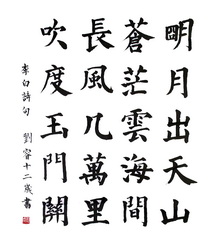 明月出天山
蒼茫雲海間
長風几萬里
吹度玉門關
李白詩句 劉睿十二歲書